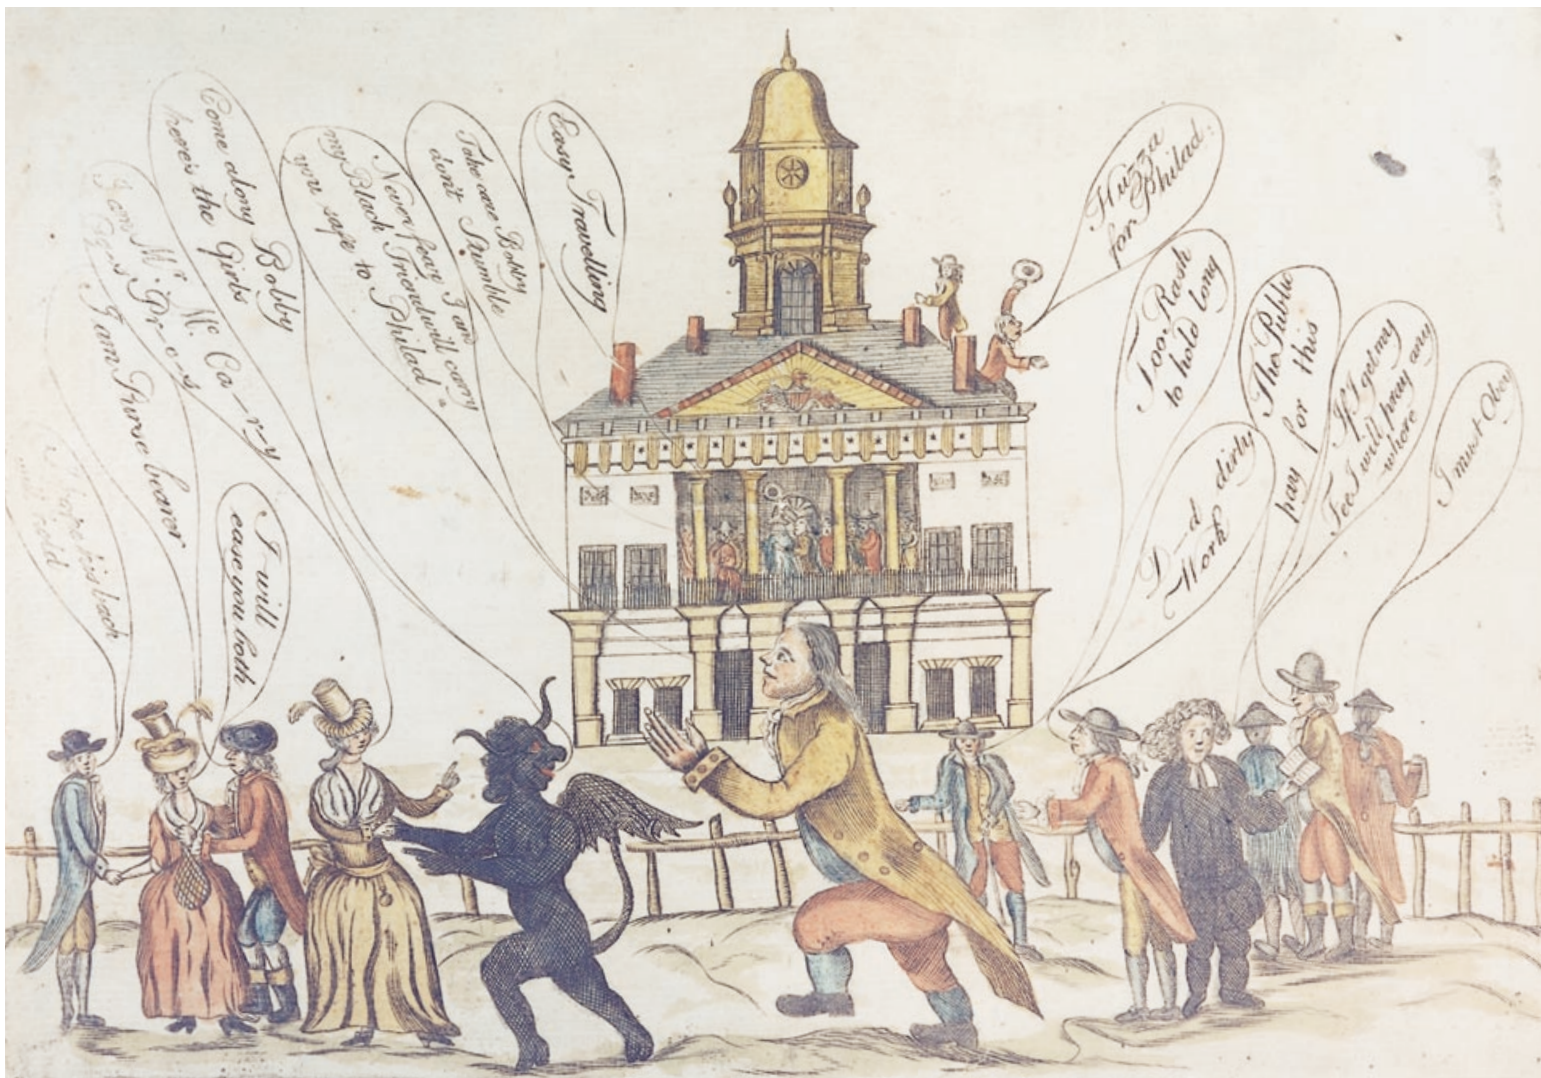 I hope his back
will hold
I am Purse bearer
I am Mr. Mc Ca—r-y
Come along Bobby
here's the Girls
I will
ease you both
Never fear I am
my Black Friend will carry
you safe to Philad.a
Take care Bobby
don't Stumble
Easy Travelling
Huzza
for Philad:
Too Rash
to hold long
D—d dirty
Work
The Public
pay for this
If I get my
Fee I will pray any
where
I must Obey